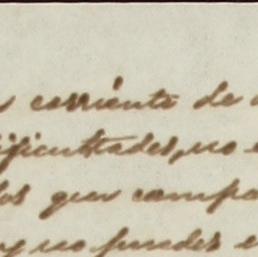 corriente de
dificultades, no
los que campa
y no puedes e